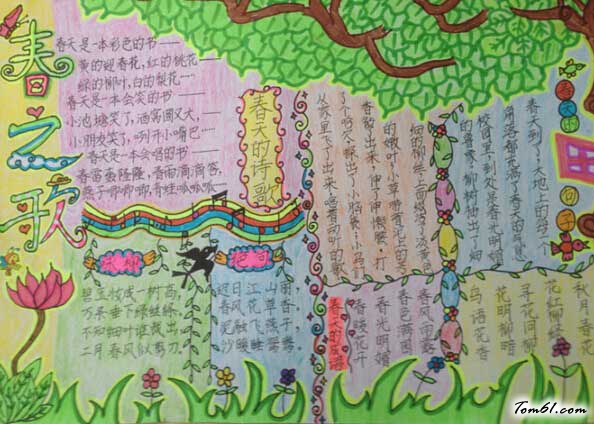 春之歌
春天是一本彩色的书——
黄的迎春花,红的桃花——
绿的柳叶,白的梨花…
春天是一本会笑的书——
小池塘笑了,酒窝圆又大,
小朋友笑了,咧开小嘴巴…
春天是一本会唱的书——
春雷轰隆隆,春雨滴滴答,
燕子唧唧唧,青蛙呱呱呱
春天的诗歌
咏柳
碧玉妆成一树高,
万条垂下绿丝绦,
不知细叶谁裁出,
二月春风似剪刀.
绝句
迟日江山丽
春风花草香
泥融飞燕子
沙暖睡鸳鸯
春天的句子
春天到了,大地上的每一个
角落都充满了春天的气息
校园里,到处是春光明媚
的景象,柳树抽出了细
细的柳丝,上面缀满了淡黄色
的嫩叶;小草带着泥土的芳
香钻出来,伸了伸懒腰,打
了个哈欠,探出了小脑袋;小鸟们
从家里飞了出来,唱着动听的歌
春天的成语
秋月春花
花红柳绿
寻花问柳
花明柳暗
鸟语花香
春风雨露
春色满园
春光明媚
春暖花开
Tom61.com